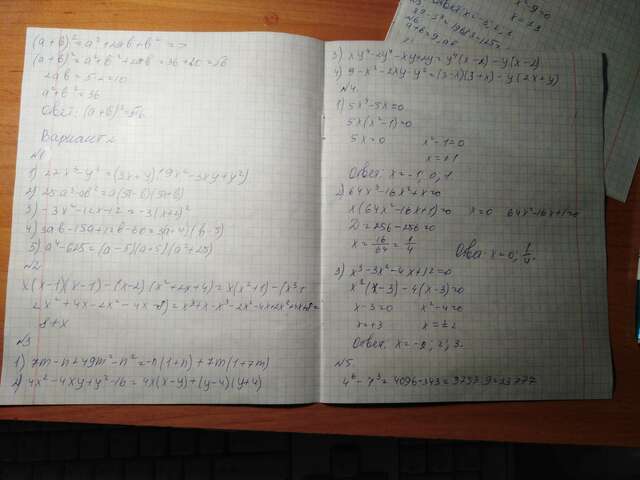 (a+b)² = a²+2ab+b² =>
(a+b)² = a²+b²+2ab = 36+20=56
2ab = 5·2=10
a²+b²=36
Ответ: (a+b)²=56.
Вариант 2
№1
1) 27x³-y³=(3x+y)(9x²-3xy+y²)
2) 25a³-ab²=a(5a-b)(5a+b)
3) -3x²-12x-12=-3(x+2)²
4) 3ab-15a+12b-60=3a+4)(b-5)
5) a⁴-625=(a-5)(a+5)(a²+25)
№2
x(x-1)(x-1)-(x-2)(x²+2x+4)=x(x²+1)-(x³+
2x²+4x-2x²-4x-8)=x³+x-x³-2x²-4x+2x²+4x+8=
8+x
№3
1) 7m-n+49m²-n²=-n(1+n)+7m(1+7m)
2) 4x²-4xy+y²-16=4x(x-y)+(y-4)(y+4)
3) xy⁴-2y⁴-xy+2y=y⁴(x-2)-y(x-2)
4) 9-x²-2xy-y²=(3-x)(3+x)-y(2x+y)
№4.
1) 5x³-5x=0
5x(x²-1)=0
5x=0 x²-1=0
x=±1
Ответ: x=-1, 0, 1
2) 64x³-16x²+x=0
x(64x²-16x+1)=0 x=0 64x²-16x+1=0
D=256-256=0
x=16/64=1/4 x=0; 1/4.
3) x³-3x²-4x+12=0
x²(x-3)-4(x-3)=0
x-3=0 x²-4=0
x=+3 x=±2
Ответ: x=-2, 2, 3.
№5.
4⁶-7³=4096-343=3753:9=